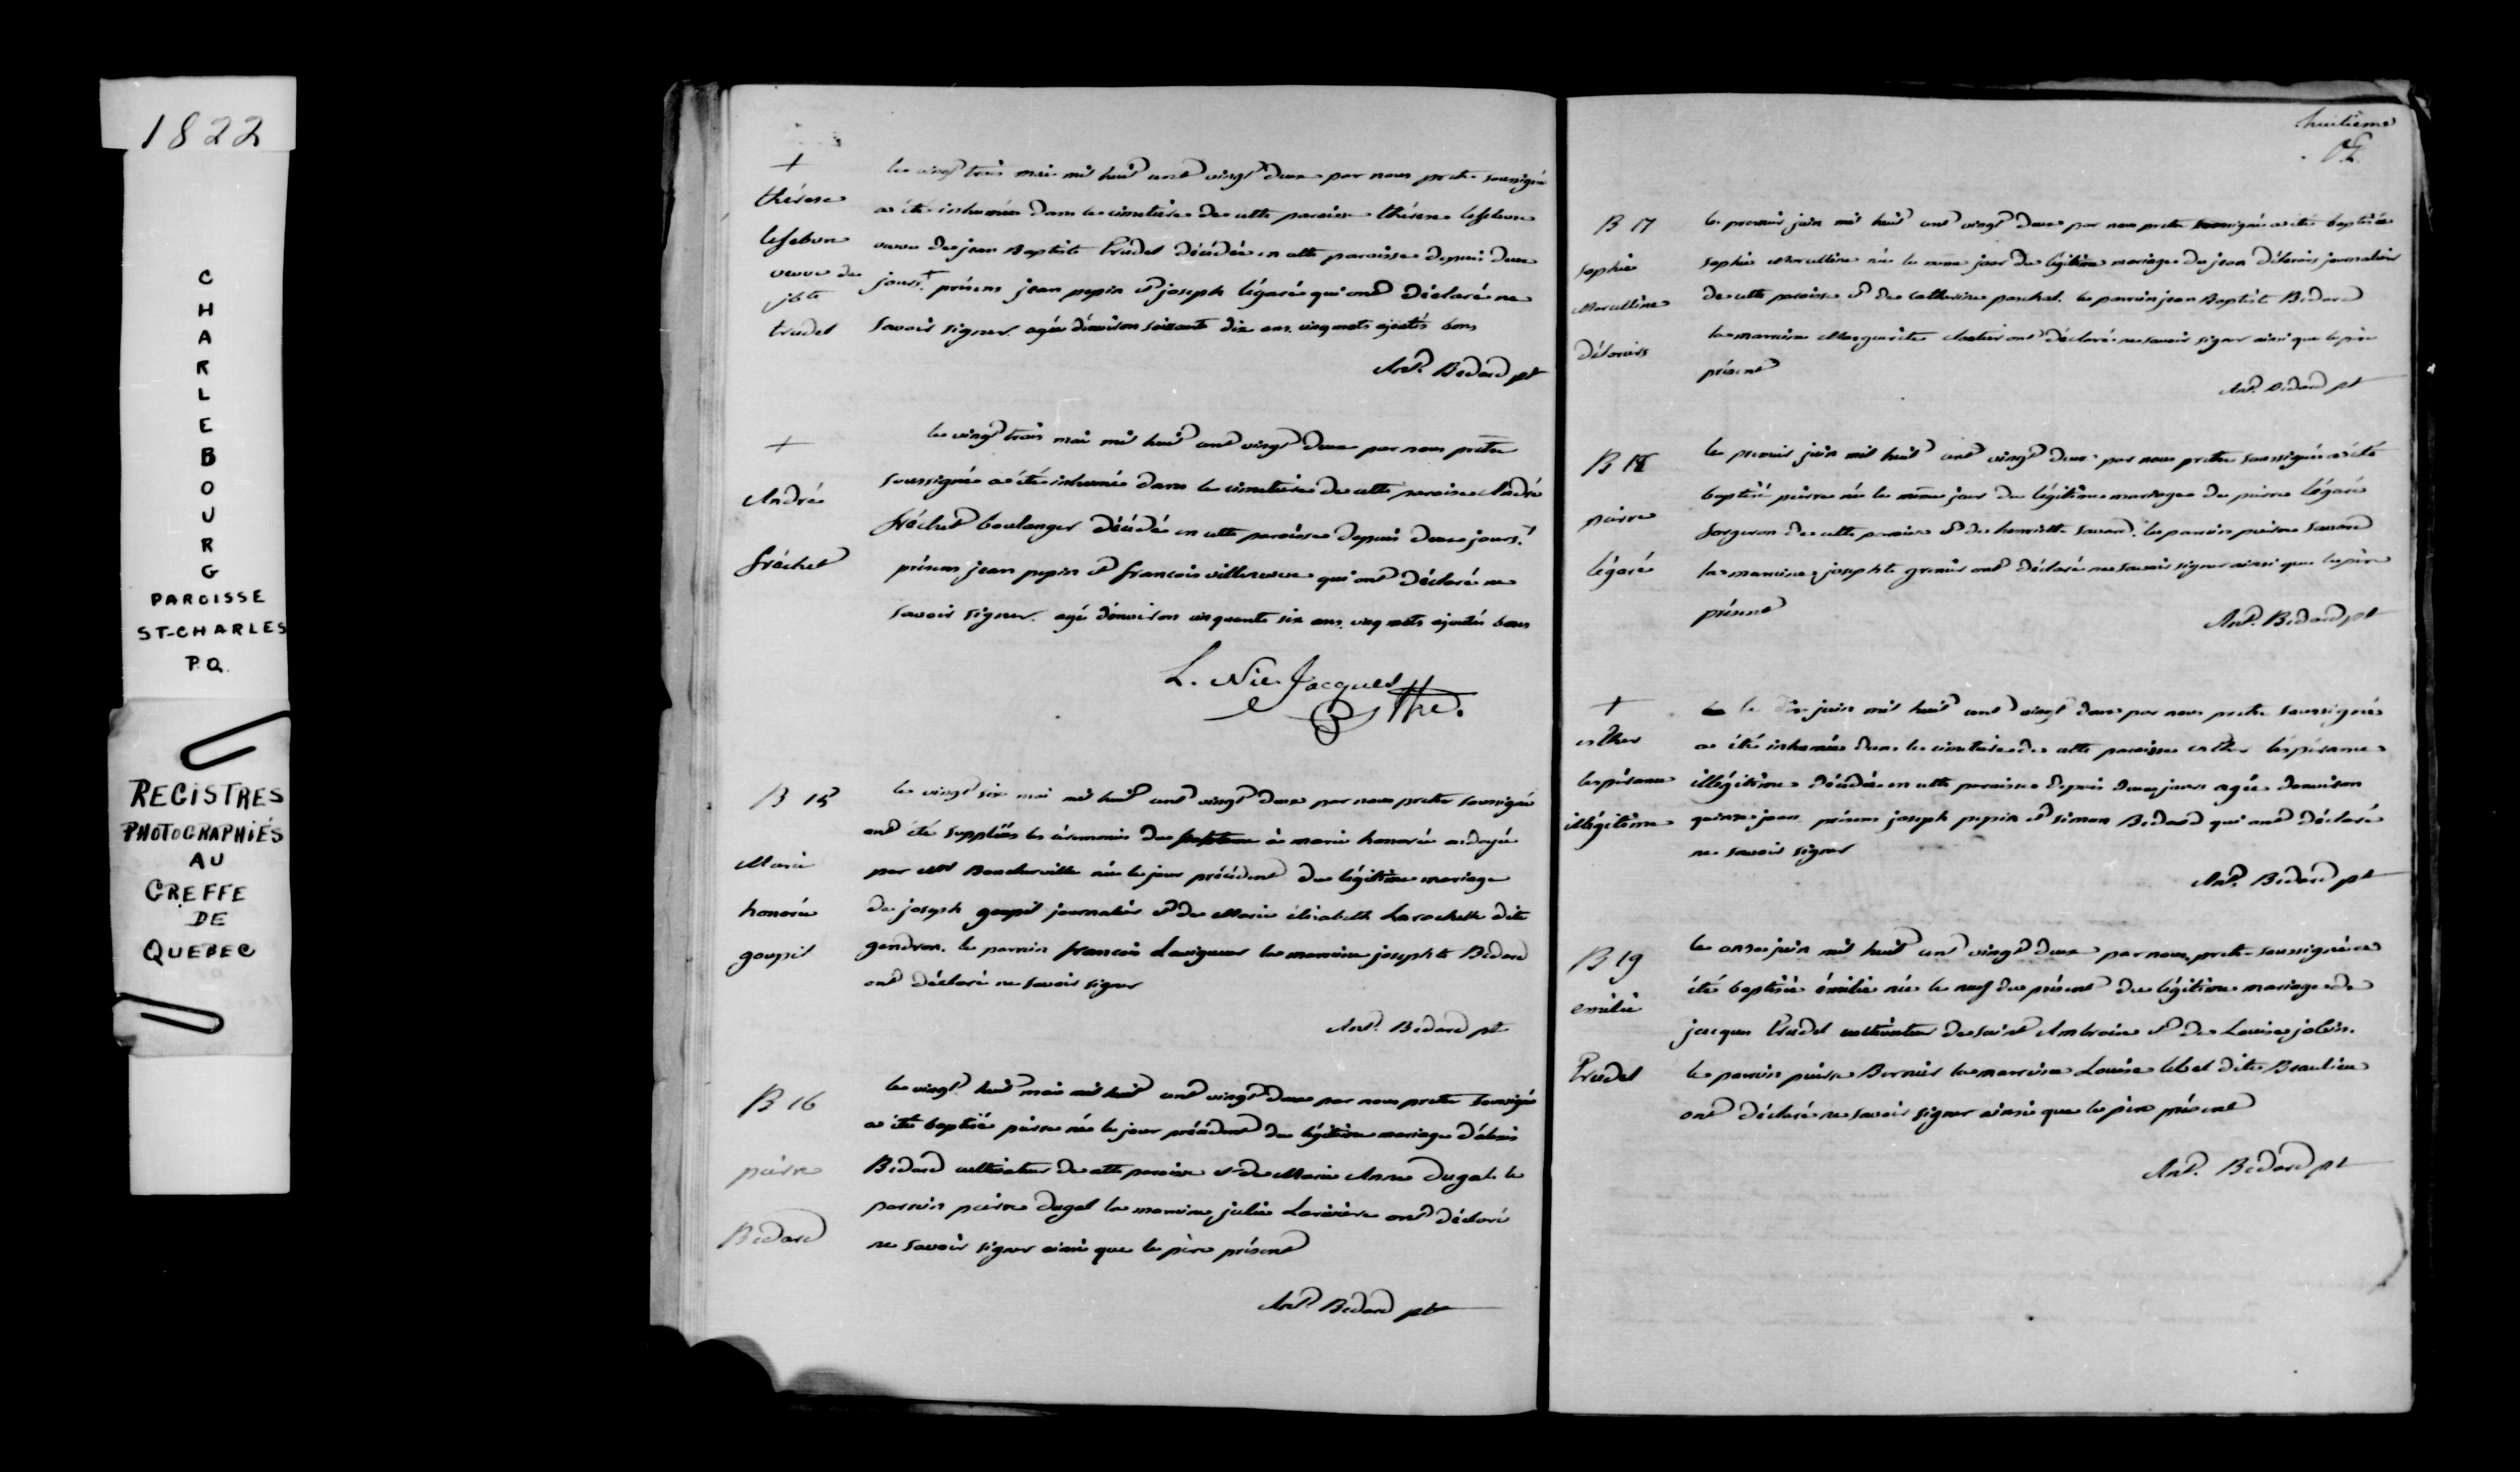 1822
CHARLEBOURG
PAROISSE
ST-CHARLES
P.Q.
REGISTRES
PHOTOGRAPHIÉS
AU
GREFFE
DE
QUEBEC
+
thérese
lefebvre
veuve de
jbte
trudel
le vingt trois mai mil huit cent vingt deux par nous prêtre soussigné
a été inhumée dans le cimetiere de cette paroisse thérese lefebvre
veuve de jean Baptiste Trudel décédée en cette paroisse depuis deux
jours + présens jean pepin et joseph légaré qui ont déclaré ne
savoir signer. agée d'environ soixante dix ans. cinq mots ajoutés bons
Ant. Bedard pt
+
André
fréchet
le vingt trois mai mil huit cent vingt deux par nous prêtre
soussigné a été inhumé dans le cimetiere de cette paroisse André
fréchet boulanger décédé en cette paroisse depuis deux jours.
présens jean pepin et francois villeneuve qui ont déclaré ne
savoir signer. agé d'environ cinquante six ans. cinq mots ajoutés bons
L. Nic. Jacques
Ptre.
B 15
Marie
honorée
goupil
le vingt six mai mil huit cent vingt deux par nous prêtre soussigné
ont été supplées les cérémonies du à marie honorée ondoyée
par Mr Boucherville née le jour précédent du légitime mariage
de joseph goupil journalier et de Marie élisabeth Larochelle dite
gendron. le parrain francois Lavigueur la marraine josephte Bedard
ont déclaré ne savoir signer
Ant. Bedard pt
B 16
pierre
Bedard
le vingt huit mai mil huit cent vingt deux par nous prêtre soussigné
a été baptisé pierre né le jour précédent du légitime mariage
Bedard cultivateur de cette paroisse et de Marie Anne Dugal. le
parrain pierre Dugal la marraine julie Lariviere ont déclaré
ne savoir signer ainsi que le père présent
Ant. Bedard pt
huitieme
B 17
sophie
Marcelline
le premier juin mil huit cent vingt deux par nous prêtre soussigné a été baptisée
sophie Marcelline née le même jour du légitime mariage de jean journalier
de cette paroisse et de Catherine paschal. le parrain jean Baptiste Bedard
la marraine Marguerite Cloutier ont déclaré ne savoir signer ainsi que le père
présent
Ant. Bedard pt
B 18
pierre
légaré
le premier juin mil huit cent vingt deux par nous prêtre soussigné a été
baptisé pierre né le même jour du légitime mariage de pierre légaré
forgeron de cette paroisse et de henriette Savard. le parrain pierre Savard
la marraine josephte grenier ont déclaré ne savoir signer ainsi que le père
présent
Ant. Bedard pt
+
esther
lespérance
illégitime
le dix juin mil huit cent vingt deux par nous prêtre soussigné
a été inhumée dans le cimetiere de cette paroisse esther lespérance
illégitime décédée en cette paroisse depuis deux jours agée d'environ
quinze jours. présens joseph pepin et simon Bedard qui ont déclaré
ne savoir signer
Ant. Bedard pt
B 19
emilie
Trudel
le onze juin mil huit cent vingt deux par nous prêtre soussigné a
été baptisée émilie née le neuf du présent du légitime mariage de
jacques Trudel cultivateur de saint Ambroise et de Louise jobin.
le parrain pierre Bernier la marraine Louise lebel dite Beaulieu
ont déclaré ne savoir signer ainsi que le père présent
Ant. Bedard pt